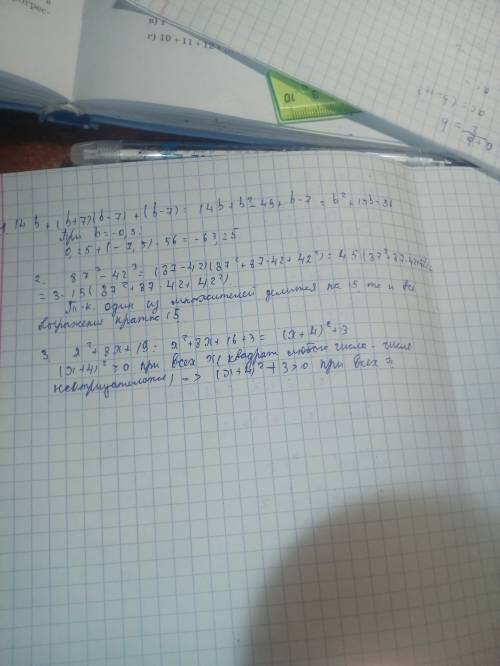 г) 10 + 11 + 12 +
10
1. 14b + (b+7)(b-7) + (b-7) = 14b + b² - 49 + b - 7 = b² + 15b - 56
При b = -0,5
0,25 + (-7,5) - 56 = -63,25
2. 87³ - 42³ = (87-42)(87²+87·42+42²) = 45(87²+87·42+42²)
= 3·15(87²+87·42+42²)
Т.к. один из множителей делится на 15, то и всё
выражение кратно 15
3. x²+8x+19 = x²+8x+16+3 = (x+4)²+3
(x+4)² ≥ 0 при всех x (квадрат любого числа - число
неотрицательное) => (x+4)²+3>0 при всех x